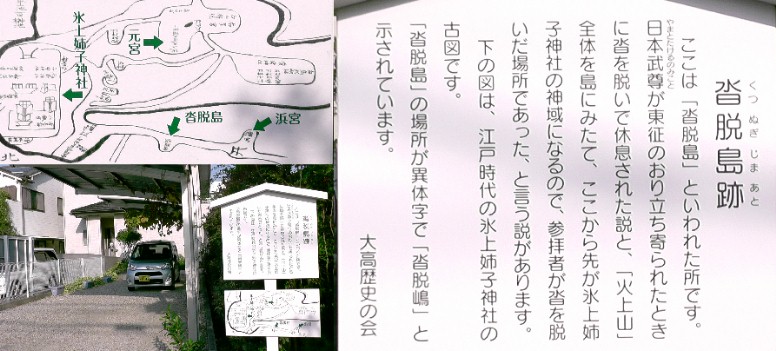 沓脱島跡
くつ ぬぎ じま あと
ここは「沓脱島」といわれた所です。
日本武尊が東征のおり立ち寄られたとき
やまとたけるのみこと
に沓を脱いで休息された説と、「火上山」
全体を島にみたて、ここから先が氷上姉
子神社の神域になるので、参拝者が沓を脱
いだ場所であった、と言う説があります。
下の図は、江戸時代の氷上姉子神社の
古図です。
「沓脱島」の場所が異体字で「沓脱嶋」と
示されています。
大高歴史の会
氷上姉子神社
元宮
沓脱島
浜宮
北